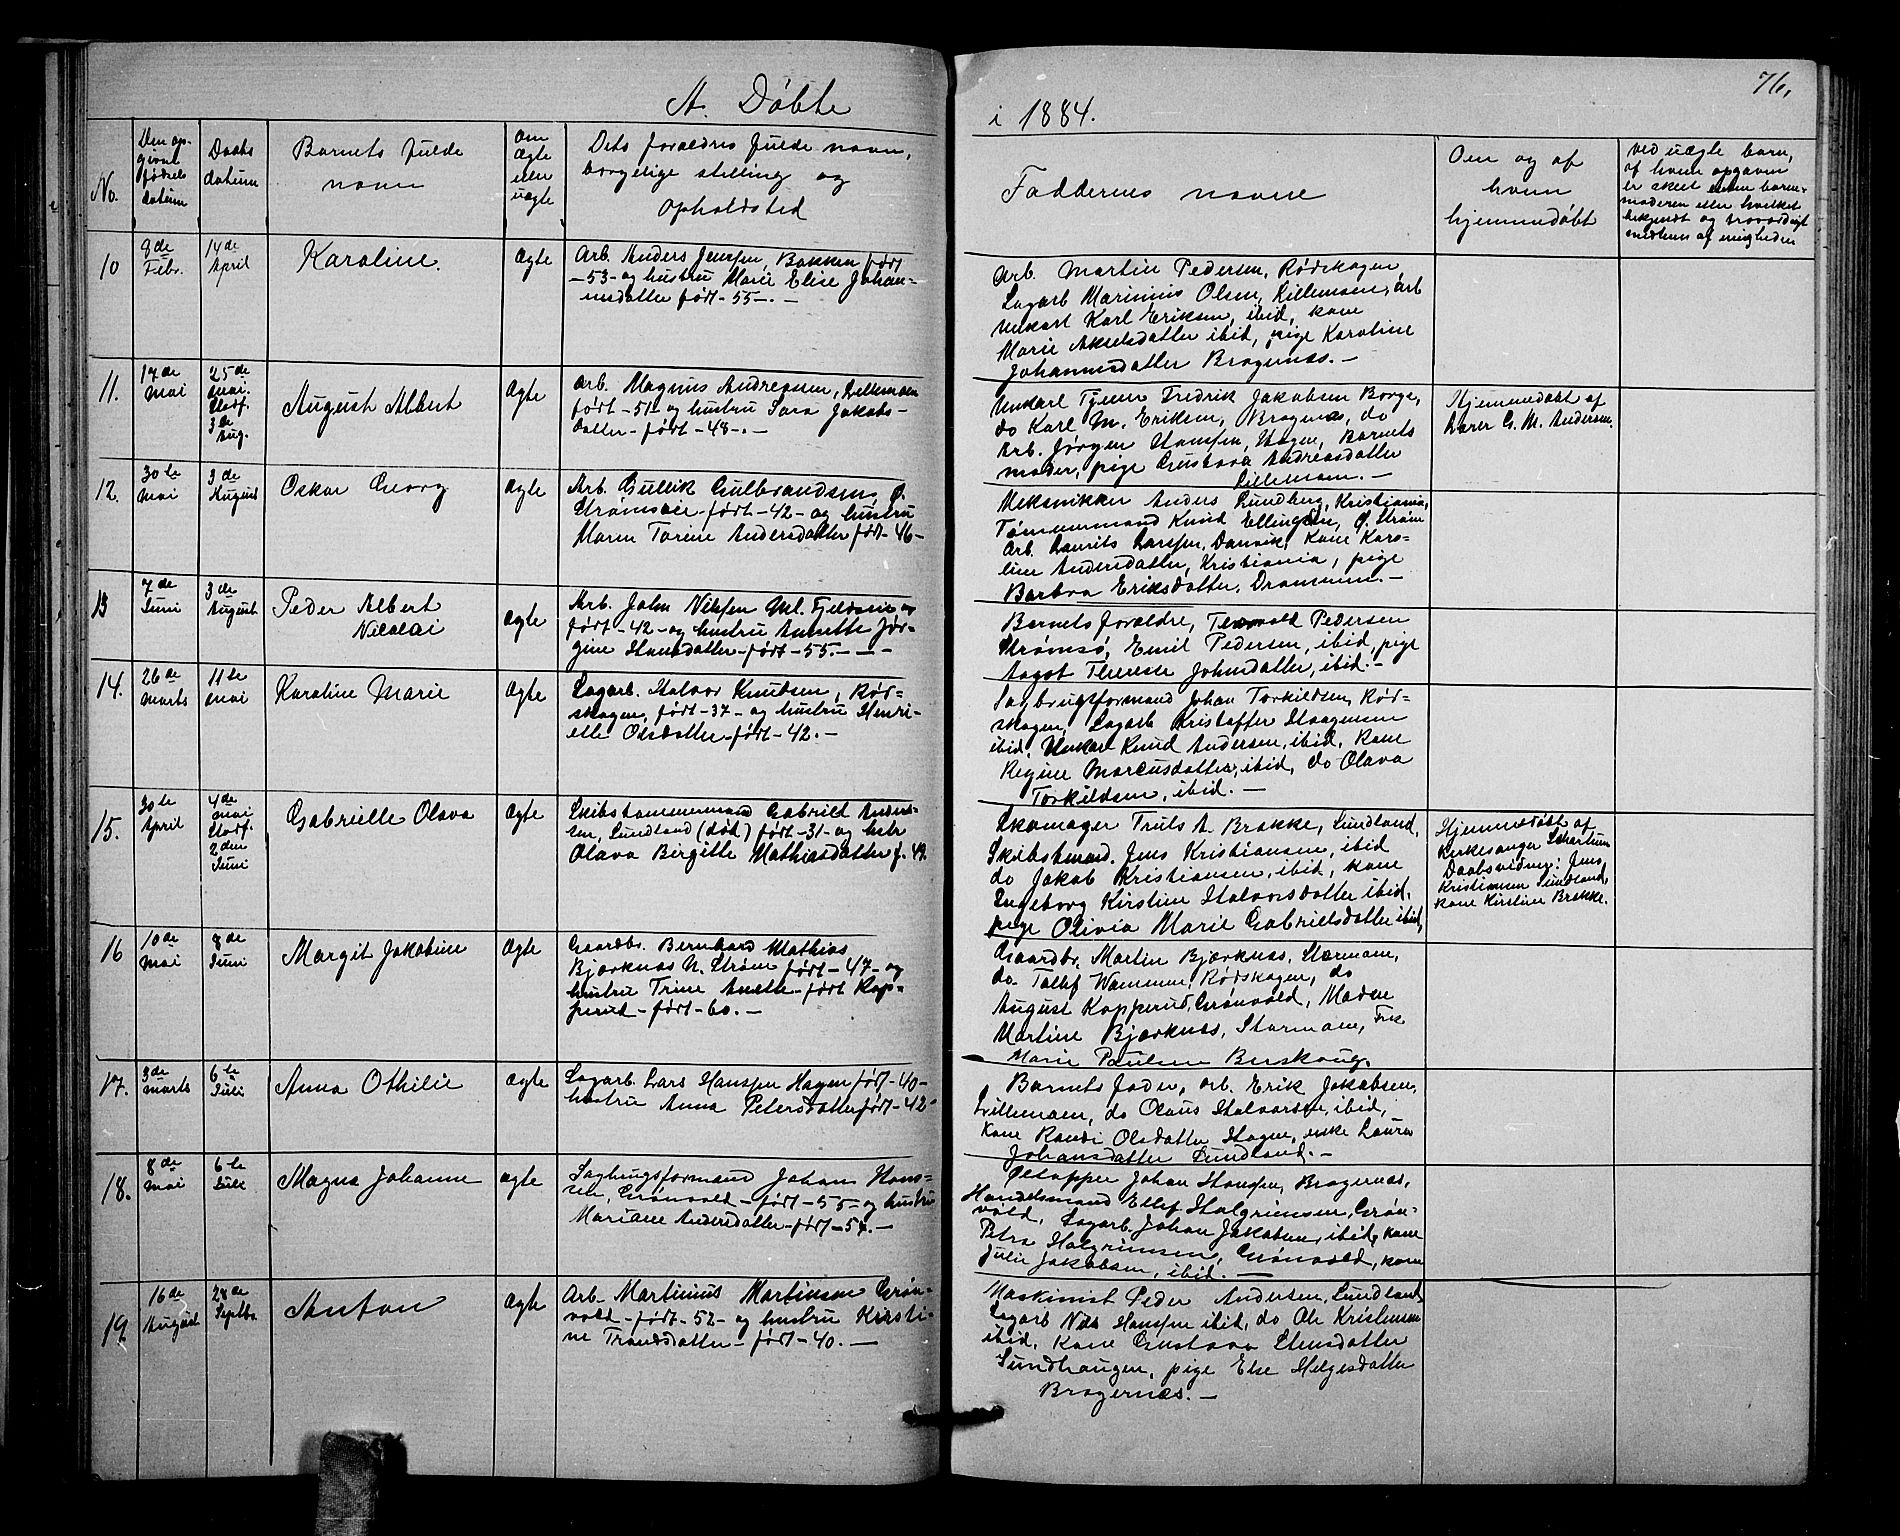 A. Døbte
i 1884.
76,
No.
Den op-
givne
fødsels
datum
Daabs
datum
Barnets fulde
navn
Om
ægte
eller
uægte
Dets forældres fulde navn,
borgelige stilling og
Opholdsted
Faddernes navne
Om og af
hvem
hjemmedøbt
ved uægte barn,
af hvem opgaven
er skeet
moderen eller hvilket
bekjendt og troværdigt
medlem af menigheden
10
8de
Febr.
14de
April
Karoline.
Ægte
Arb. Anders Jenssen, Bakken født
-53- og hustru Marie Elise Johan-
nesdatter født -55-. -
Arb. Martin Pedersen, Rødskogen,
Sagarb Marinius Olsen, Killemoen, arb
Unkarl Karl Eriksen, ibid, kone
Marie Akselsdatter ibid, pige Karoline
Johannesdatter Bragernæs. -
11.
14de
Mai
25de
Mai.
Stadf.
3de
Aug.
August Albert
Ægte
Arb. Magnus Andreasen, Lillemoen
født -51- og hustru Sara Jakobs-
datter - født -48-. -
Unkarl Fredrik Jakobsen Borge,
do Karl M. Eriksen, Bragernæs, do
Arb. Jørgen Hanssen, Hagen, Barnets
moder, pige Gustava Andreasdatter
Lillemoen. -
Hjemmedøbt af
Lærer G. M. Andersen.
12.
30te
Mai
3de
August
Oskar Georg
Ægte
Arb. Gullik Gulbrandsen, Ø.
Strømsoe - født -42- og hustru
Maren Torine Andersdatter født -46-
Meksnikker Anders Lundberg, Kristiania,
Tømmermand Knud Ellingsen, Ø. Strøm
Arb. Laurits Larssen, Dansvik, Kone Karo-
line Andersdatter, Kristiania, pige
Barbra Eriksdatter, Drammen. -
13
7de
Juni
3de
August
Peder Albert
Nicolai
Ægte
Arb. John Nilssen Ml. Fjeldsøen
født -42- og hustru Annette Jør-
gine Hansdatter - født -55. - -
Barnets forældre, Pedersen
Strømsø, Emil Pedersen, ibid, pige
Aagot Therese Johnsdatter, ibid. -
14.
26de
Marts
11te
Mai
Karoline Marie
Ægte
Sagarb. Halvor Knudsen, Rød-
skogen, født -37- og hustru Henri-
ette Olsdatter - født -42. -
Sagbrugsformand Johan Torkildsen, Rød-
skogen, Sagarb Kristoffer Haagensen
ibid, Unkarl Knud Andersen, ibid, kone
Regine Marcusdatter, ibid, do Olava
Torkildsen, ibid. -
15.
30te
April
4de
Mai
Stadf.
2den
Juni
Gabrielle Olava
Ægte
Skibstømmermand Gabriel Anders-
sen, Sundland (død) født -31- og hustr
Olava Birgitte Mathiasdatter f. 49.
Skomager Truls A. Brække, Sundland,
Skibstmand. Jens Kristiansen, ibid
do Jakob Kristiansen, ibid, kone
Ingeborg Kirstine Halvorsdatter ibid,
pige Olivia Marie Gabrielsdatter ibid,
Hjemmedøbt af
Kirkesanger
Daabsvidner: Jens
Kristiansen Sundland,
kone Kirstine Brække.
16
10de
Mai
8de
Juni
Margit Jakobine
Ægte
Gaardbr. Bernhard Mathias
Bjærknæs N. Strøm født -47- og
hustru Trine Anette - født Kop-
perud - født -60. -
Gaardbr. Martin Bjærknæs, Stormoen,
do. Tollef Wammen, Rødskogen, do
August Kopperud, Grønvold, Madm
Martine Bjærknæs, Stormoen, Frk
Marie Paulsen Buskoug.
17.
3de
Marts
6te
Juli
Anna Othilie
Ægte
Sagarb. Lars Hanssen Hagen født -40-
hustru Anna Petersdatter født -42-
Barnets fader, arb. Erik Jakobsen,
Lillemoen, do Olaus Halvorsen, ibid,
Kone Randi Olsdatter Hagen, enke Laura
Johansdatter Sundland. -
18.
8de
Mai
6te
Juli
Magna Johanne
Ægte
Sagbrugsformand Johan Hans-
sen, Grønvold - født -55- og hustru
Mariane Andersdatter - født -54. -
Øltapper Johan Hanssen, Bragernæs,
Handelsmand Ellef Halgrimsen, Grøn-
vold, Sagarb. Johan Jakobsen, ibid, kone
Petra Halgrimsen, Grønvold, kone
Julie Jakobsen, ibid. -
19.
16de
August
28de
Septbr.
Anton
Ægte
Arb. Martinius Martinsen Grøn-
vold - født -52- og hustru Kirsti-
ne Trondsdatter - født -40. -
Maskinist Peder Andersen, Sundland,
Sagarb Nils Hanssen ibid, do Ole Kristensen
ibid, Kone Gustava Stensdatter
Sundhaugen, pige Else Helgesdatter
Bragernæs. -